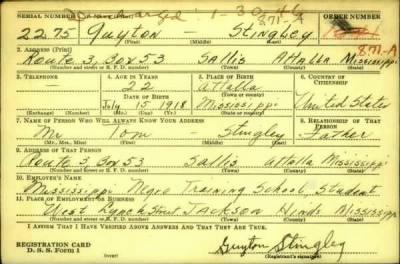 Discharged 1-30-46
871-A
SERIAL NUMBER 1. NAME (Print) ORDER NUMBER
2275 Guyton — Stingley 871-A
(First) (Middle) (Last)
2. ADDRESS (Print)
Route 3, Box 53 Sallis Attalla Mississippi
(Number and street or R. F. D. number) (Town) (County) (State)
3. TELEPHONE 4. AGE IN YEARS 5. PLACE OF BIRTH 6. COUNTRY OF CITIZENSHIP
— 22 Attalla
DATE OF BIRTH
July 15 1918 Mississippi United States
(Exchange) (Number) (Mo.) (Day) (Yr.) (State or country)
7. NAME OF PERSON WHO WILL ALWAYS KNOW YOUR ADDRESS 8. RELATIONSHIP OF THAT PERSON
Mr Tom — Stingley Father
(Mr., Mrs., Miss) (First) (Middle) (Last)
9. ADDRESS OF THAT PERSON
Route 3, Box 53 Sallis Attalla Mississippi
(Number and street or R. F. D. number) (Town) (County) (State)
10. EMPLOYER'S NAME
Mississippi Negro Training School, Student
11. PLACE OF EMPLOYMENT OR BUSINESS
West Lynch Street Jackson Hinds Mississippi
(Number and street or R. F. D. number) (Town) (County) (State)
I AFFIRM THAT I HAVE VERIFIED ABOVE ANSWERS AND THAT THEY ARE TRUE.
REGISTRATION CARD
D. S. S. Form 1
Guyton Stingley
(Registrant's signature)